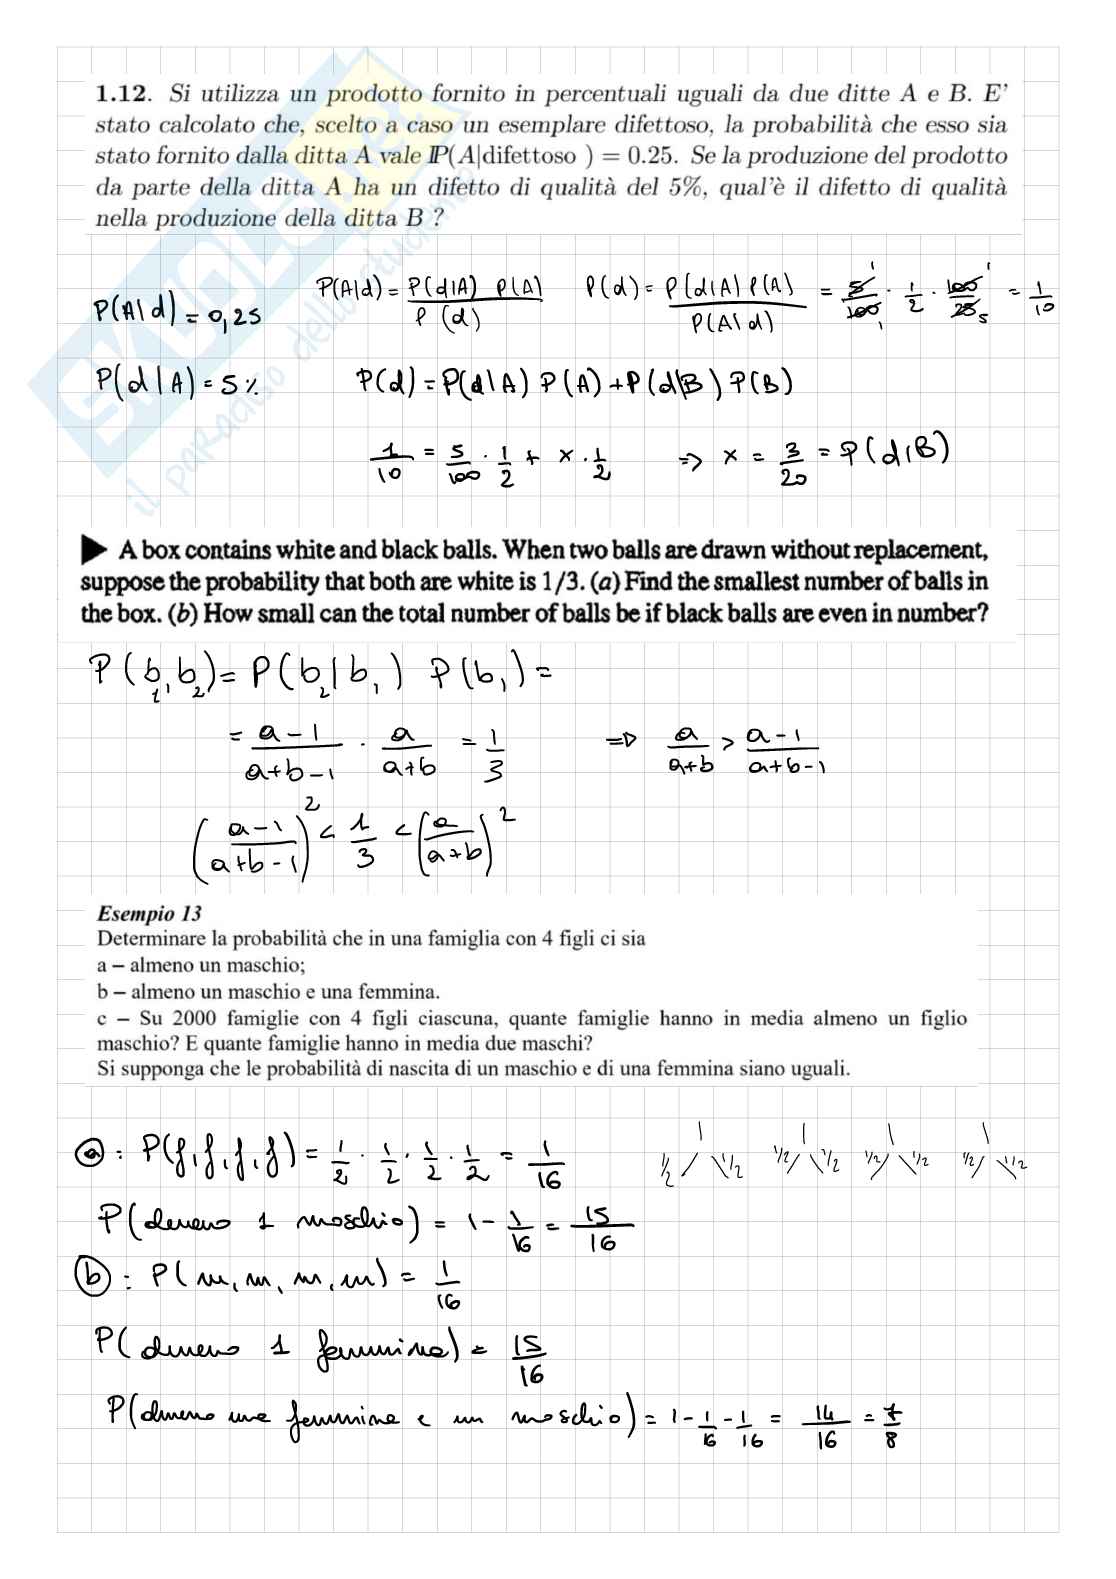 1.12. Si utilizza un prodotto fornito in percentuali uguali da due ditte A e B. E'
stato calcolato che, scelto a caso un esemplare difettoso, la probabilità che esso sia
stato fornito dalla ditta A vale IP(A|difettoso ) = 0.25. Se la produzione del prodotto
da parte della ditta A ha un difetto di qualità del 5%, qual'è il difetto di qualità
nella produzione della ditta B ?
P(A|d) = 0,25
P(A|d) = P(d|A) P(A) / P(d)
P(d) = P(d|A) P(A) / P(A|d) = 5/100 · 1/2 · 100/25 = 1/10
P(d|A) = 5%
P(d) = P(d|A) P(A) + P(d|B) P(B)
1/10 = 5/100 · 1/2 + x · 1/2 => x = 3/20 = P(d|B)
▶ A box contains white and black balls. When two balls are drawn without replacement,
suppose the probability that both are white is 1/3. (a) Find the smallest number of balls in
the box. (b) How small can the total number of balls be if black balls are even in number?
P(b₁, b₂) = P(b₂|b₁) P(b₁) =
= a-1/a+b-1 · a/a+b = 1/3 => a/a+b > a-1/a+b-1
(a-1/a+b-1)² < 1/3 < (a/a+b)²
Esempio 13
Determinare la probabilità che in una famiglia con 4 figli ci sia
a – almeno un maschio;
b – almeno un maschio e una femmina.
c – Su 2000 famiglie con 4 figli ciascuna, quante famiglie hanno in media almeno un figlio
maschio? E quante famiglie hanno in media due maschi?
Si supponga che le probabilità di nascita di un maschio e di una femmina siano uguali.
a : P(f,f,f,f) = 1/2 · 1/2 · 1/2 · 1/2 = 1/16
1 1 1 1
1/2 1/2 1/2 1/2 1/2 1/2 1/2 1/2
P(almeno 1 maschio) = 1 - 1/16 = 15/16
b : P(m, m, m, m) = 1/16
P(almeno 1 femmina) = 15/16
P(almeno una femmina e un maschio) = 1 - 1/16 - 1/16 = 14/16 = 7/8
SKUOLA.net
il paradiso dello studente